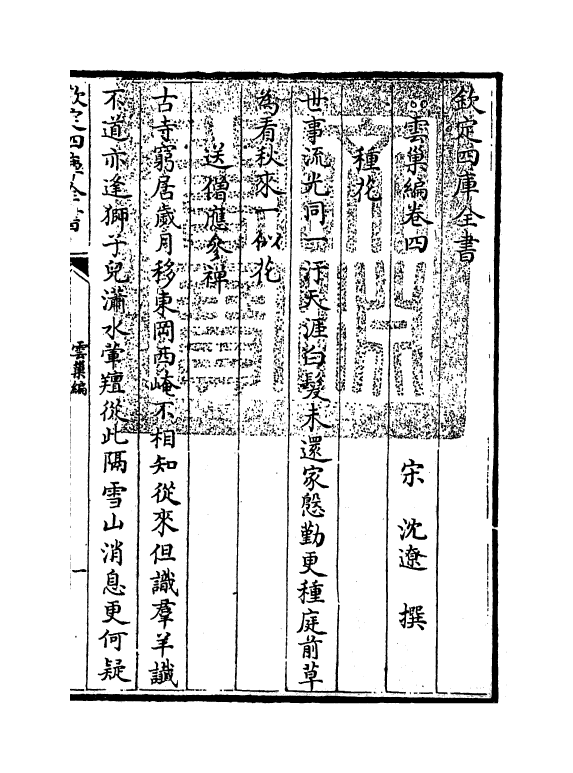 欽定四庫全書
雲巢編卷四
宋　沈遼　撰
種花
世事流光同一汙天涯白髮未還家慇勤更種庭前草
為看秋來一似花
送僧應參禪
古寺窮居歲月移東岡西崦不相知從來但識羣羊讖
不道亦逢獅子兒瀟水葷羶從此隔雪山消息更何疑
欽定四庫全書
雲巢編
一